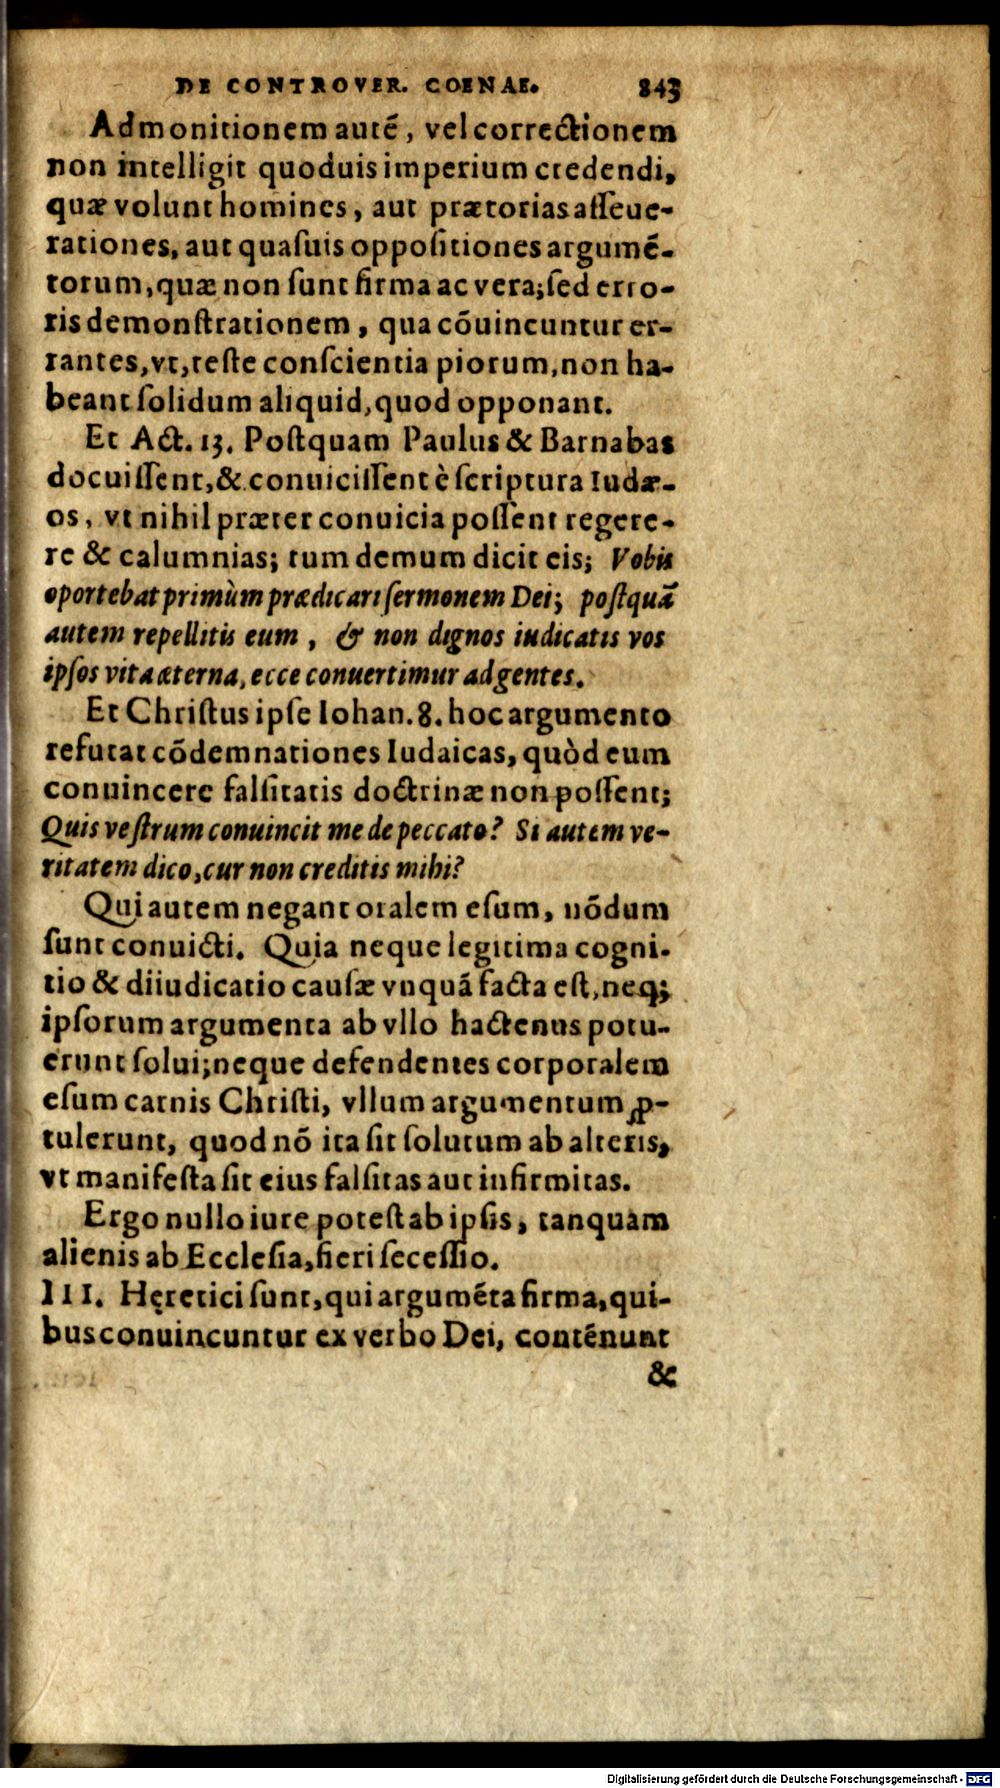 DE CONTROVER. COENAE. 843
Admonitionem autē, vel correctionem
non intelligit quoduis imperium credendi,
quæ volunt homines, aut prætorias asseue-
rationes, aut quasuis oppositiones argumē-
torum, quæ non sunt firma ac vera; sed erro-
ris demonstrationem, qua cōuincuntur er-
rantes, vt, teste conscientia piorum, non ha-
beant solidum aliquid, quod opponant.
Et Act. 13. Postquam Paulus & Barnabas
docuissent, & conuicissent è scriptura Iudæ-
os, vt nihil præter conuicia possent regere-
re & calumnias; tum demum dicit eis; Vobis
oportebat primùm prædicari sermonem Dei; postquā
autem repellitis eum, & non dignos iudicatis vos
ipsos vita æterna, ecce conuertimur ad gentes.
Et Christus ipse Iohan. 8. hoc argumento
refutat cōdemnationes Iudaicas, quòd eum
conuincere falsitatis doctrinæ non possent;
Quis vestrum conuincit me de peccato? Si autem ve-
ritatem dico, cur non creditis mihi?
Qui autem negant oralem esum, nōdum
sunt conuicti. Quia neque legitima cogni-
tio & diiudicatio causæ vnquā facta est, neq;
ipsorum argumenta ab vllo hactenus potu-
erunt solui; neque defendentes corporalem
esum carnis Christi, vllum argumentum ꝓ-
tulerunt, quod nō ita sit solutum ab alteris,
vt manifesta sit eius falsitas aut infirmitas.
Ergo nullo iure potest ab ipsis, tanquam
alienis ab Ecclesia, fieri secessio.
III. Hęretici sunt, qui argumēta firma, qui-
bus conuincuntur ex verbo Dei, contēnunt
&
Digitalisierung gefördert durch die Deutsche Forschungsgemeinschaft - DFG